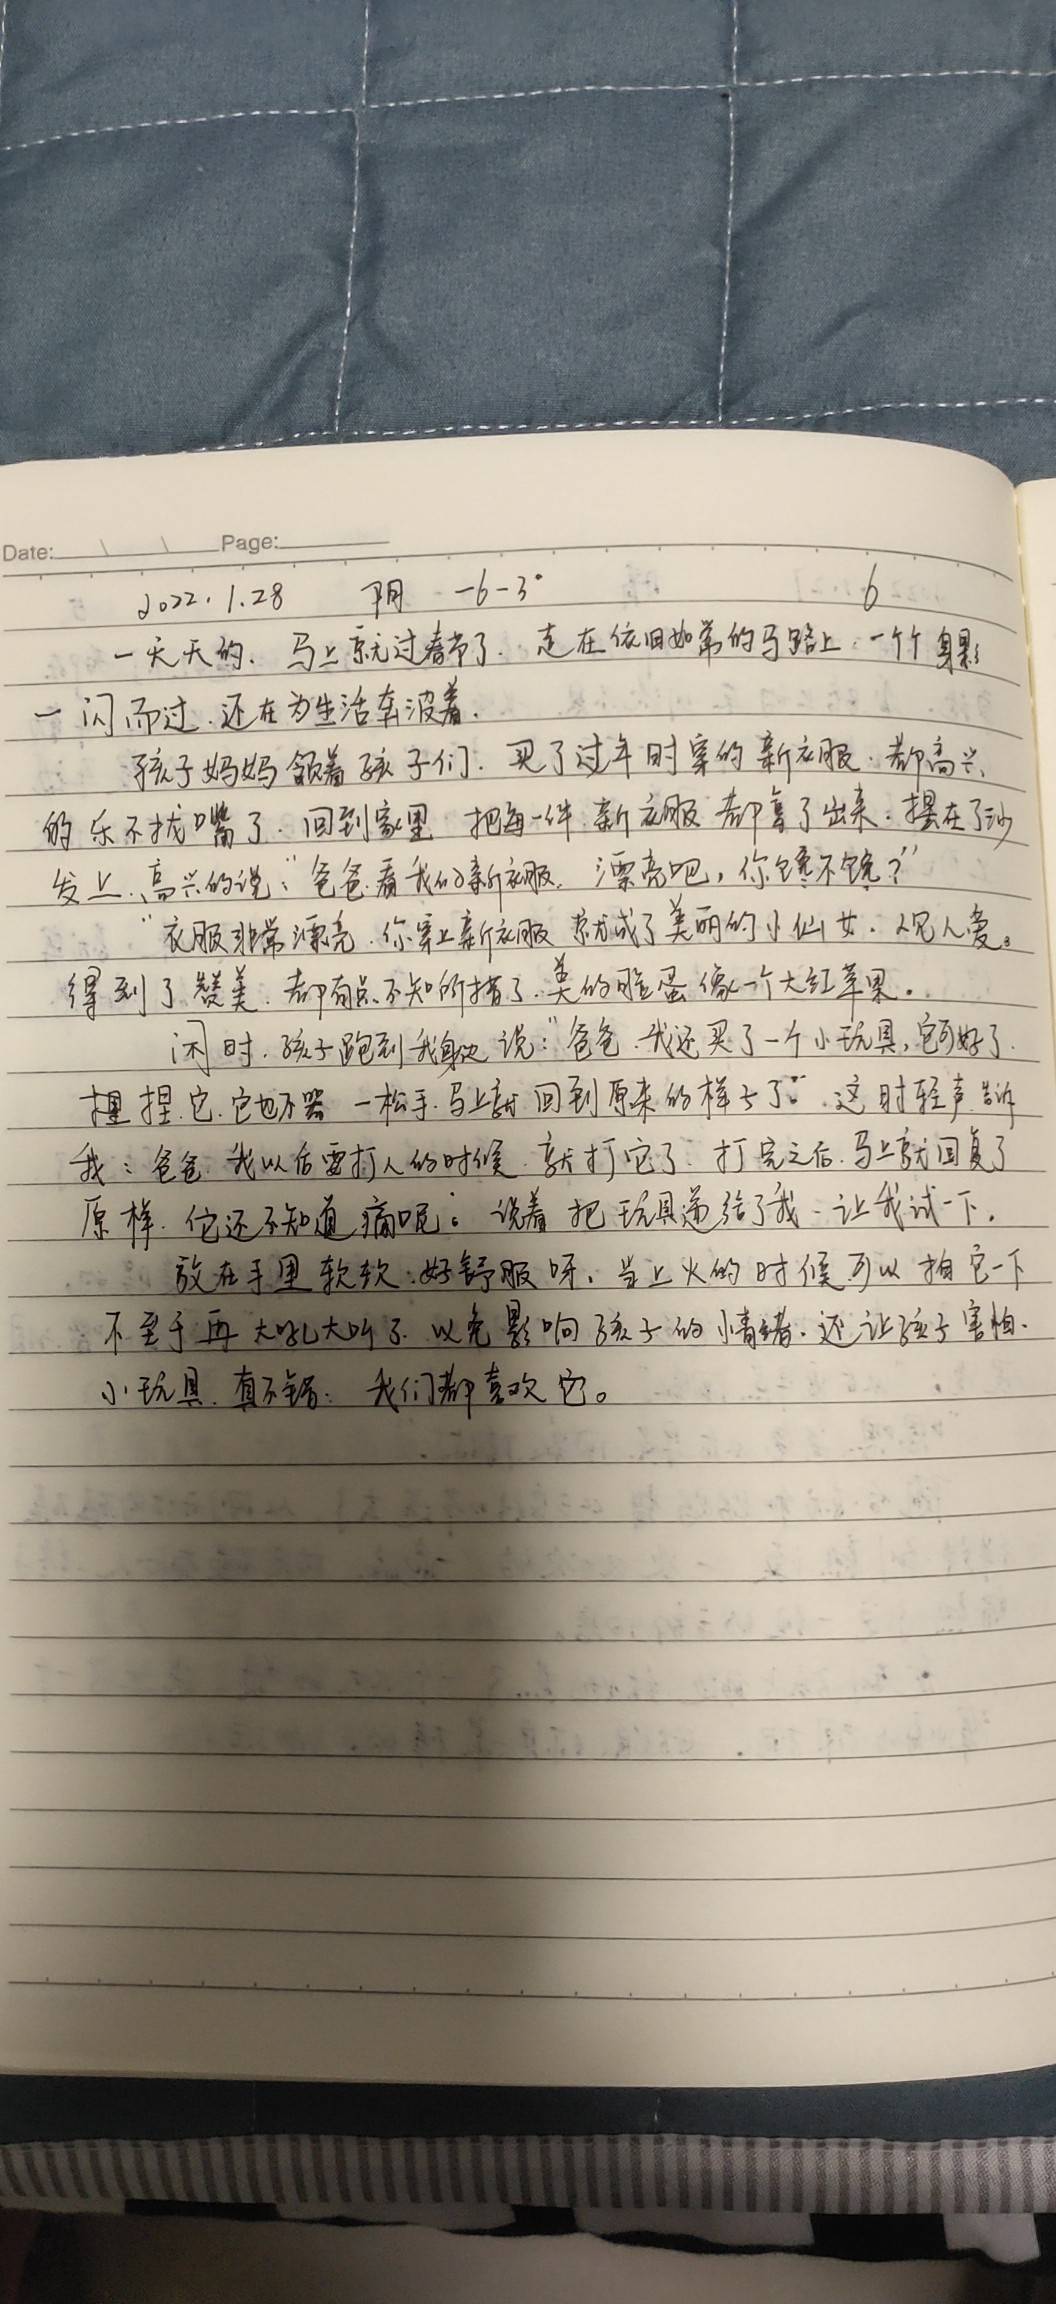 Date: \ \ Page:
2022.1.28 阴 -6-3° 6
一天天的、马上就过春节了.走在依旧如常的马路上.一个个身影
一闪而过.还在为生活奔波着.
孩子妈妈领着孩子们.买了过年时穿的新衣服.都高兴
的乐不找嘴了.回到家里 把每一件新衣服都拿了出来.摆在了沙
发上、高兴的说:"爸爸.看我的新衣服.漂亮吧,你馋不馋?"
"衣服非常漂亮.你穿上新衣服就成了美丽的小仙女.人见人爱。
得到了赞美.都有点不知所措了.美的脸蛋像一个大红苹果.
闲时.孩子跑到我身边说:"爸爸.我还买了一个小玩具,它可好了.
捏捏它.它也不哭 一松手.马上就回到原来的样子了。"这时轻声告诉
我:爸爸.我以后要打人的时候.就打它了.打完之后.马上就回复了
原样.它还不知道痛呢。说着把玩具递给了我.让我试一下.
放在手里软软.好舒服呀.当上火的时候可以拍它一下
不至于再大吼大叫了.以免影响孩子的情绪.还让孩子害怕.
小玩具.真不错.我们都喜欢它。